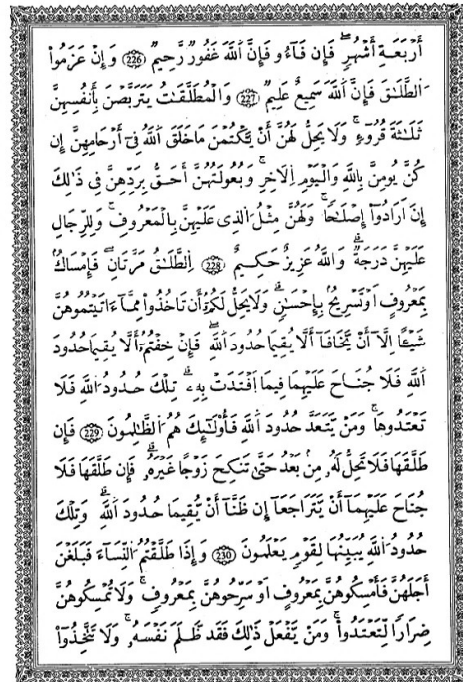 أَرْبَعَةِ أَشْهُرٍ ۖ فَإِن فَآءُو فَإِنَّ ٱللَّهَ غَفُورٌ رَّحِيمٌ ﴿226﴾ وَإِنْ عَزَمُوا۟
ٱلطَّلَـٰقَ فَإِنَّ ٱللَّهَ سَمِيعٌ عَلِيمٌ ﴿227﴾ وَٱلْمُطَلَّقَـٰتُ يَتَرَبَّصْنَ بِأَنفُسِهِنَّ
ثَلَـٰثَةَ قُرُوٓءٍ ۚ وَلَا يَحِلُّ لَهُنَّ أَنْ يَّكْتُمْنَ مَا خَلَقَ ٱللَّهُ فِىٓ أَرْحَامِهِنَّ إِن
كُنَّ يُومِنَّ بِٱللَّهِ وَٱلْيَوْمِ ٱلَاخِرِ ۚ وَبُعُولَتُهُنَّ أَحَقُّ بِرَدِّهِنَّ فِى ذَٰلِكَ
إِنْ أَرَادُوٓا۟ إِصْلَـٰحًا ۚ وَلَهُنَّ مِثْلُ ٱلَّذِى عَلَيْهِنَّ بِٱلْمَعْرُوفِ ۚ وَلِلرِّجَالِ
عَلَيْهِنَّ دَرَجَةٌ ۗ وَٱللَّهُ عَزِيزٌ حَكِيمٌ ﴿228﴾ ٱلطَّلَـٰقُ مَرَّتَانِ ۖ فَإِمْسَاكٌۢ
بِمَعْرُوفٍ أَوْ تَسْرِيحٌۢ بِإِحْسَـٰنٍ ۗ وَلَا يَحِلُّ لَكُمُۥٓ أَن تَاخُذُوا۟ مِمَّآ ءَاتَيْتُمُوهُنَّ
شَيْـًٔا إِلَّآ أَنْ يَّخَافَآ أَلَّا يُقِيمَا حُدُودَ ٱللَّهِ ۖ فَإِنْ خِفْتُمُۥٓ أَلَّا يُقِيمَا حُدُودَ
ٱللَّهِ فَلَا جُنَاحَ عَلَيْهِمَا فِيمَا ٱفْتَدَتْ بِهِۦ ۗ تِلْكَ حُدُودُ ٱللَّهِ فَلَا
تَعْتَدُوهَا ۚ وَمَنْ يَّتَعَدَّ حُدُودَ ٱللَّهِ فَأُو۟لَـٰٓئِكَ هُمُ ٱلظَّـٰلِمُونَ ﴿229﴾ فَإِن
طَلَّقَهَا فَلَا تَحِلُّ لَهُۥ مِنۢ بَعْدُ حَتَّىٰ تَنكِحَ زَوْجًا غَيْرَهُۥ ۗ فَإِن طَلَّقَهَا فَلَا
جُنَاحَ عَلَيْهِمَآ أَنْ يَّتَرَاجَعَآ إِن ظَنَّآ أَنْ يُّقِيمَا حُدُودَ ٱللَّهِ ۗ وَتِلْكَ
حُدُودُ ٱللَّهِ يُبَيِّنُهَا لِقَوْمٍ يَعْلَمُونَ ﴿230﴾ وَإِذَا طَلَّقْتُمُ ٱلنِّسَآءَ فَبَلَغْنَ
أَجَلَهُنَّ فَأَمْسِكُوهُنَّ بِمَعْرُوفٍ اَوْ سَرِّحُوهُنَّ بِمَعْرُوفٍ ۚ وَلَا تُمْسِكُوهُنَّ
ضِرَارًا لِّتَعْتَدُوا۟ ۚ وَمَنْ يَّفْعَلْ ذَٰلِكَ فَقَد ظَّلَمَ نَفْسَهُۥ ۚ وَلَا تَتَّخِذُوٓا۟